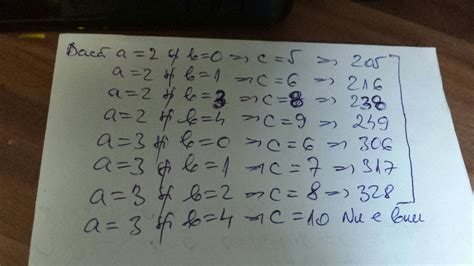 Dacă a=2 și b=0 => c=5 => 205
a=2 și b=1 => c=6 => 216
a=2 și b=3 => c=8 => 238
a=2 și b=4 => c=9 => 249
a=3 și b=0 => c=6 => 306
a=3 și b=1 => c=7 => 317
a=3 și b=2 => c=8 => 328
a=3 și b=4 => c=10 Nu e bun